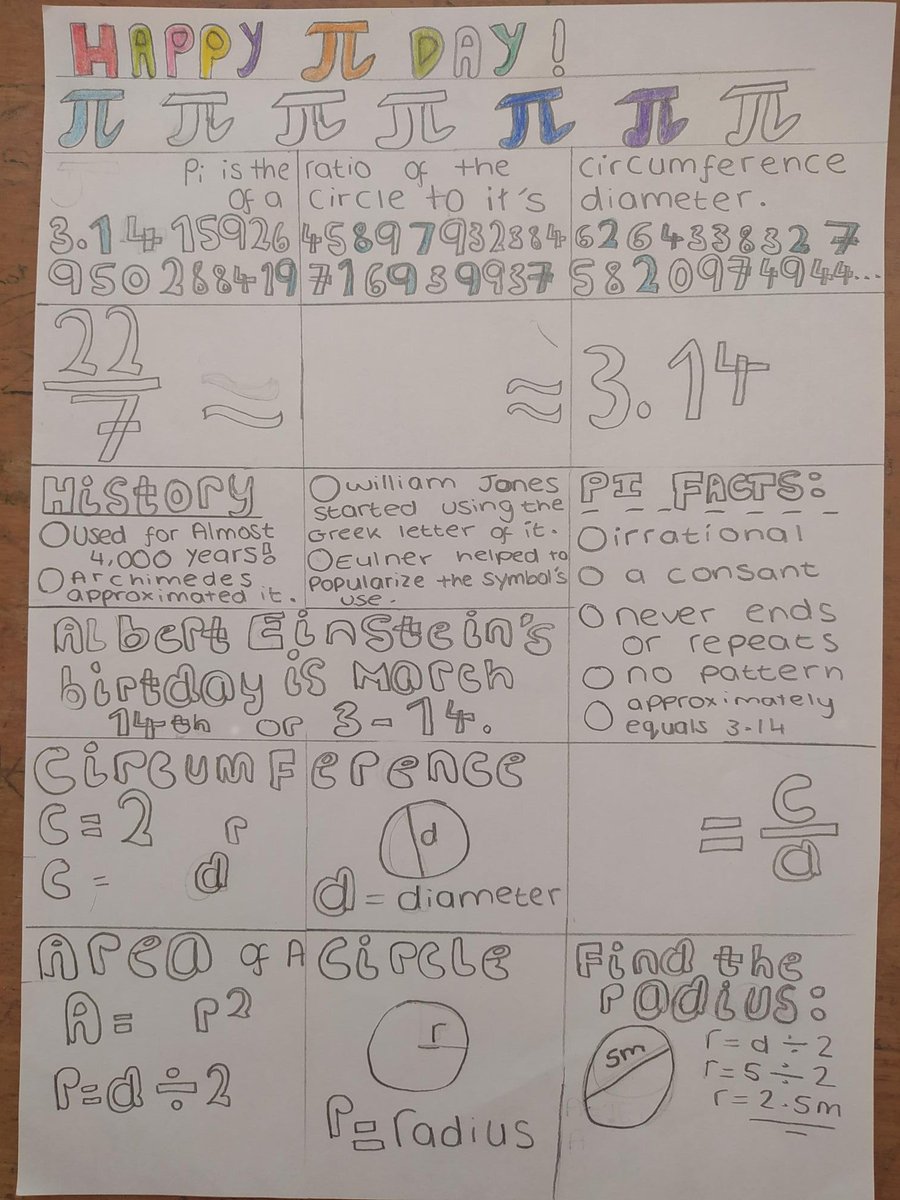 HAPPY π DAY!
π π π π π π π
Pi is the ratio of the circumference
of a circle to it's diameter.
3.14 15926 45897932384 626433832 7
950288419 716939937 582097494 4...
22/7 ≈ ≈ 3.14
History
Used for Almost
4,000 years!
Archimedes
approximated it.
William Jones
started using the
Greek letter of it.
Eulner helped to
Popularize the symbol's
use.
PI FACTS:
irrational
a consant
never ends
or repeats
no pattern
approximately
equals 3.14
Albert Einstein's
birtday is March
14th or 3-14.
Circumference
C = 2 r
C = d
d
d = diameter
= C/d
Area of A Circle
A = r2
r = d ÷ 2
r
r = radius
Find the
radius:
5m
r = d ÷ 2
r = 5 ÷ 2
r = 2.5m